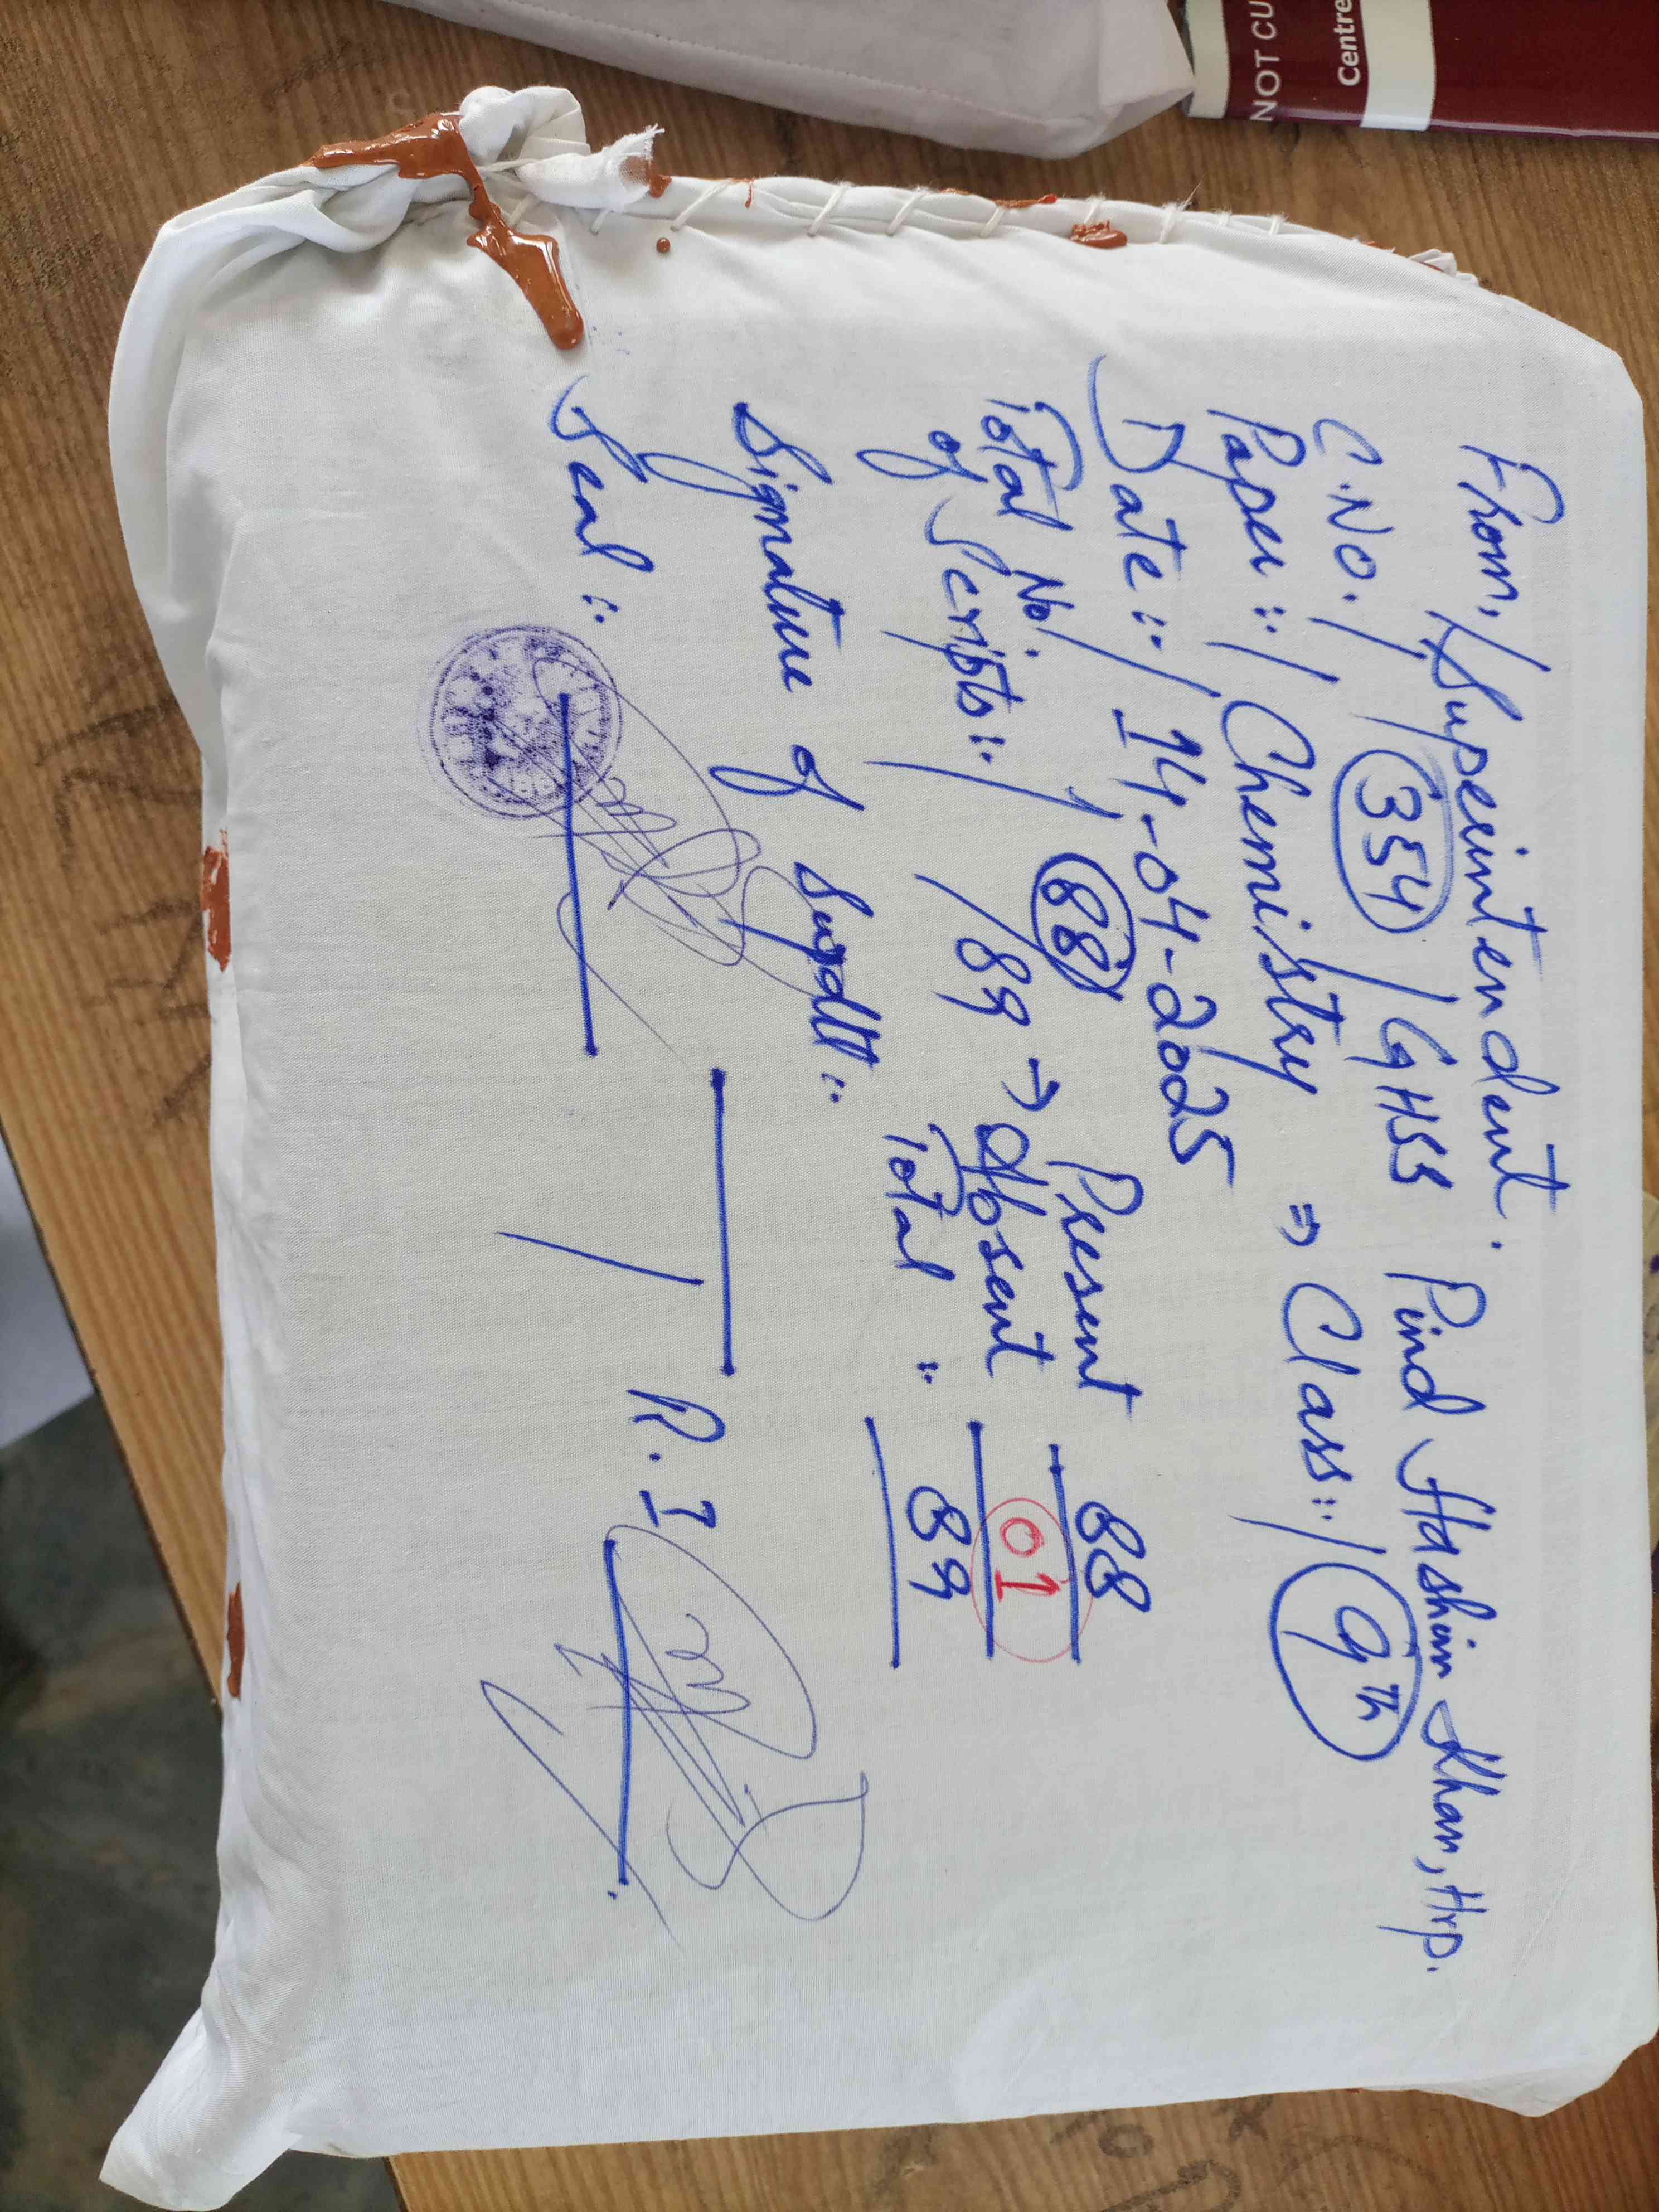 From, / Superintendent.
C.No. / 354 / GHSS Pind Hashim Khan, Hrp.
Paper :- / Chemistry => Class :- / 9th
Date :- / 14-04-2025
Total No. of Scripts :- / 88 / 89 →
Present 88
Absent 01
Total :- 89
Signature of Supdtt :-
Seal :-
R. I
NOT CU
Centre